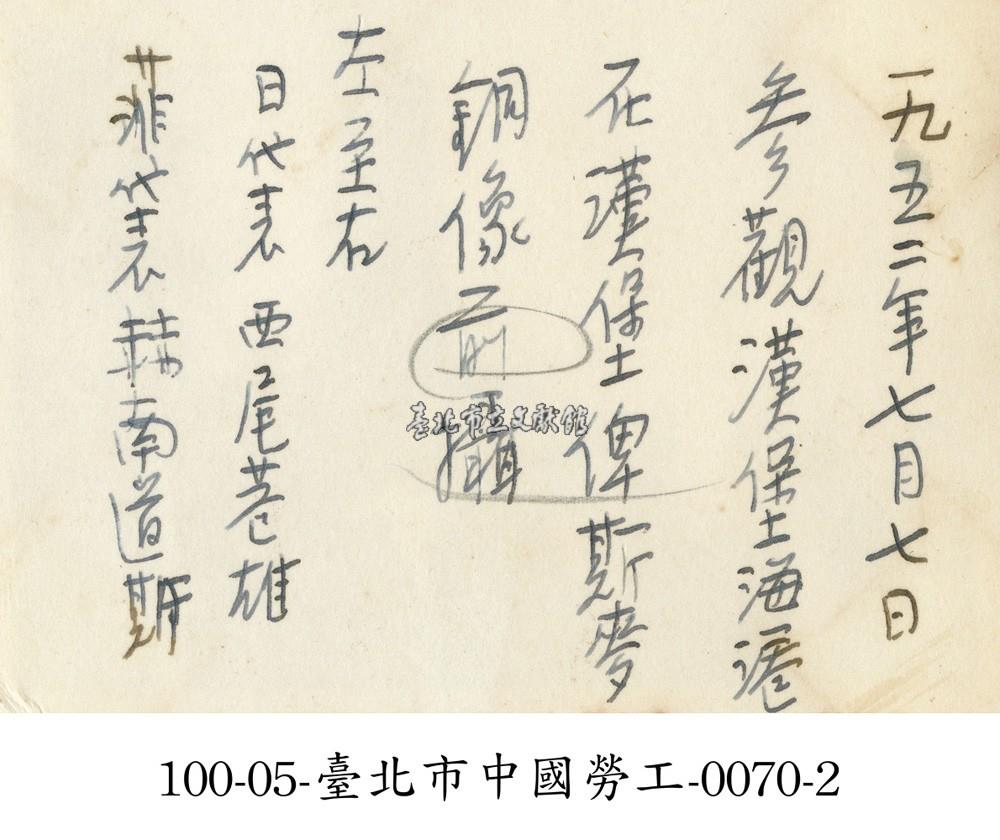 一九五二年七月七日
參觀漢堡海港
在漢堡俾斯麥
銅像前攝
左至右
日代表 西尾巷雄
菲代表赫南道斯
臺北市立文獻館
100-05-臺北市中國勞工-0070-2